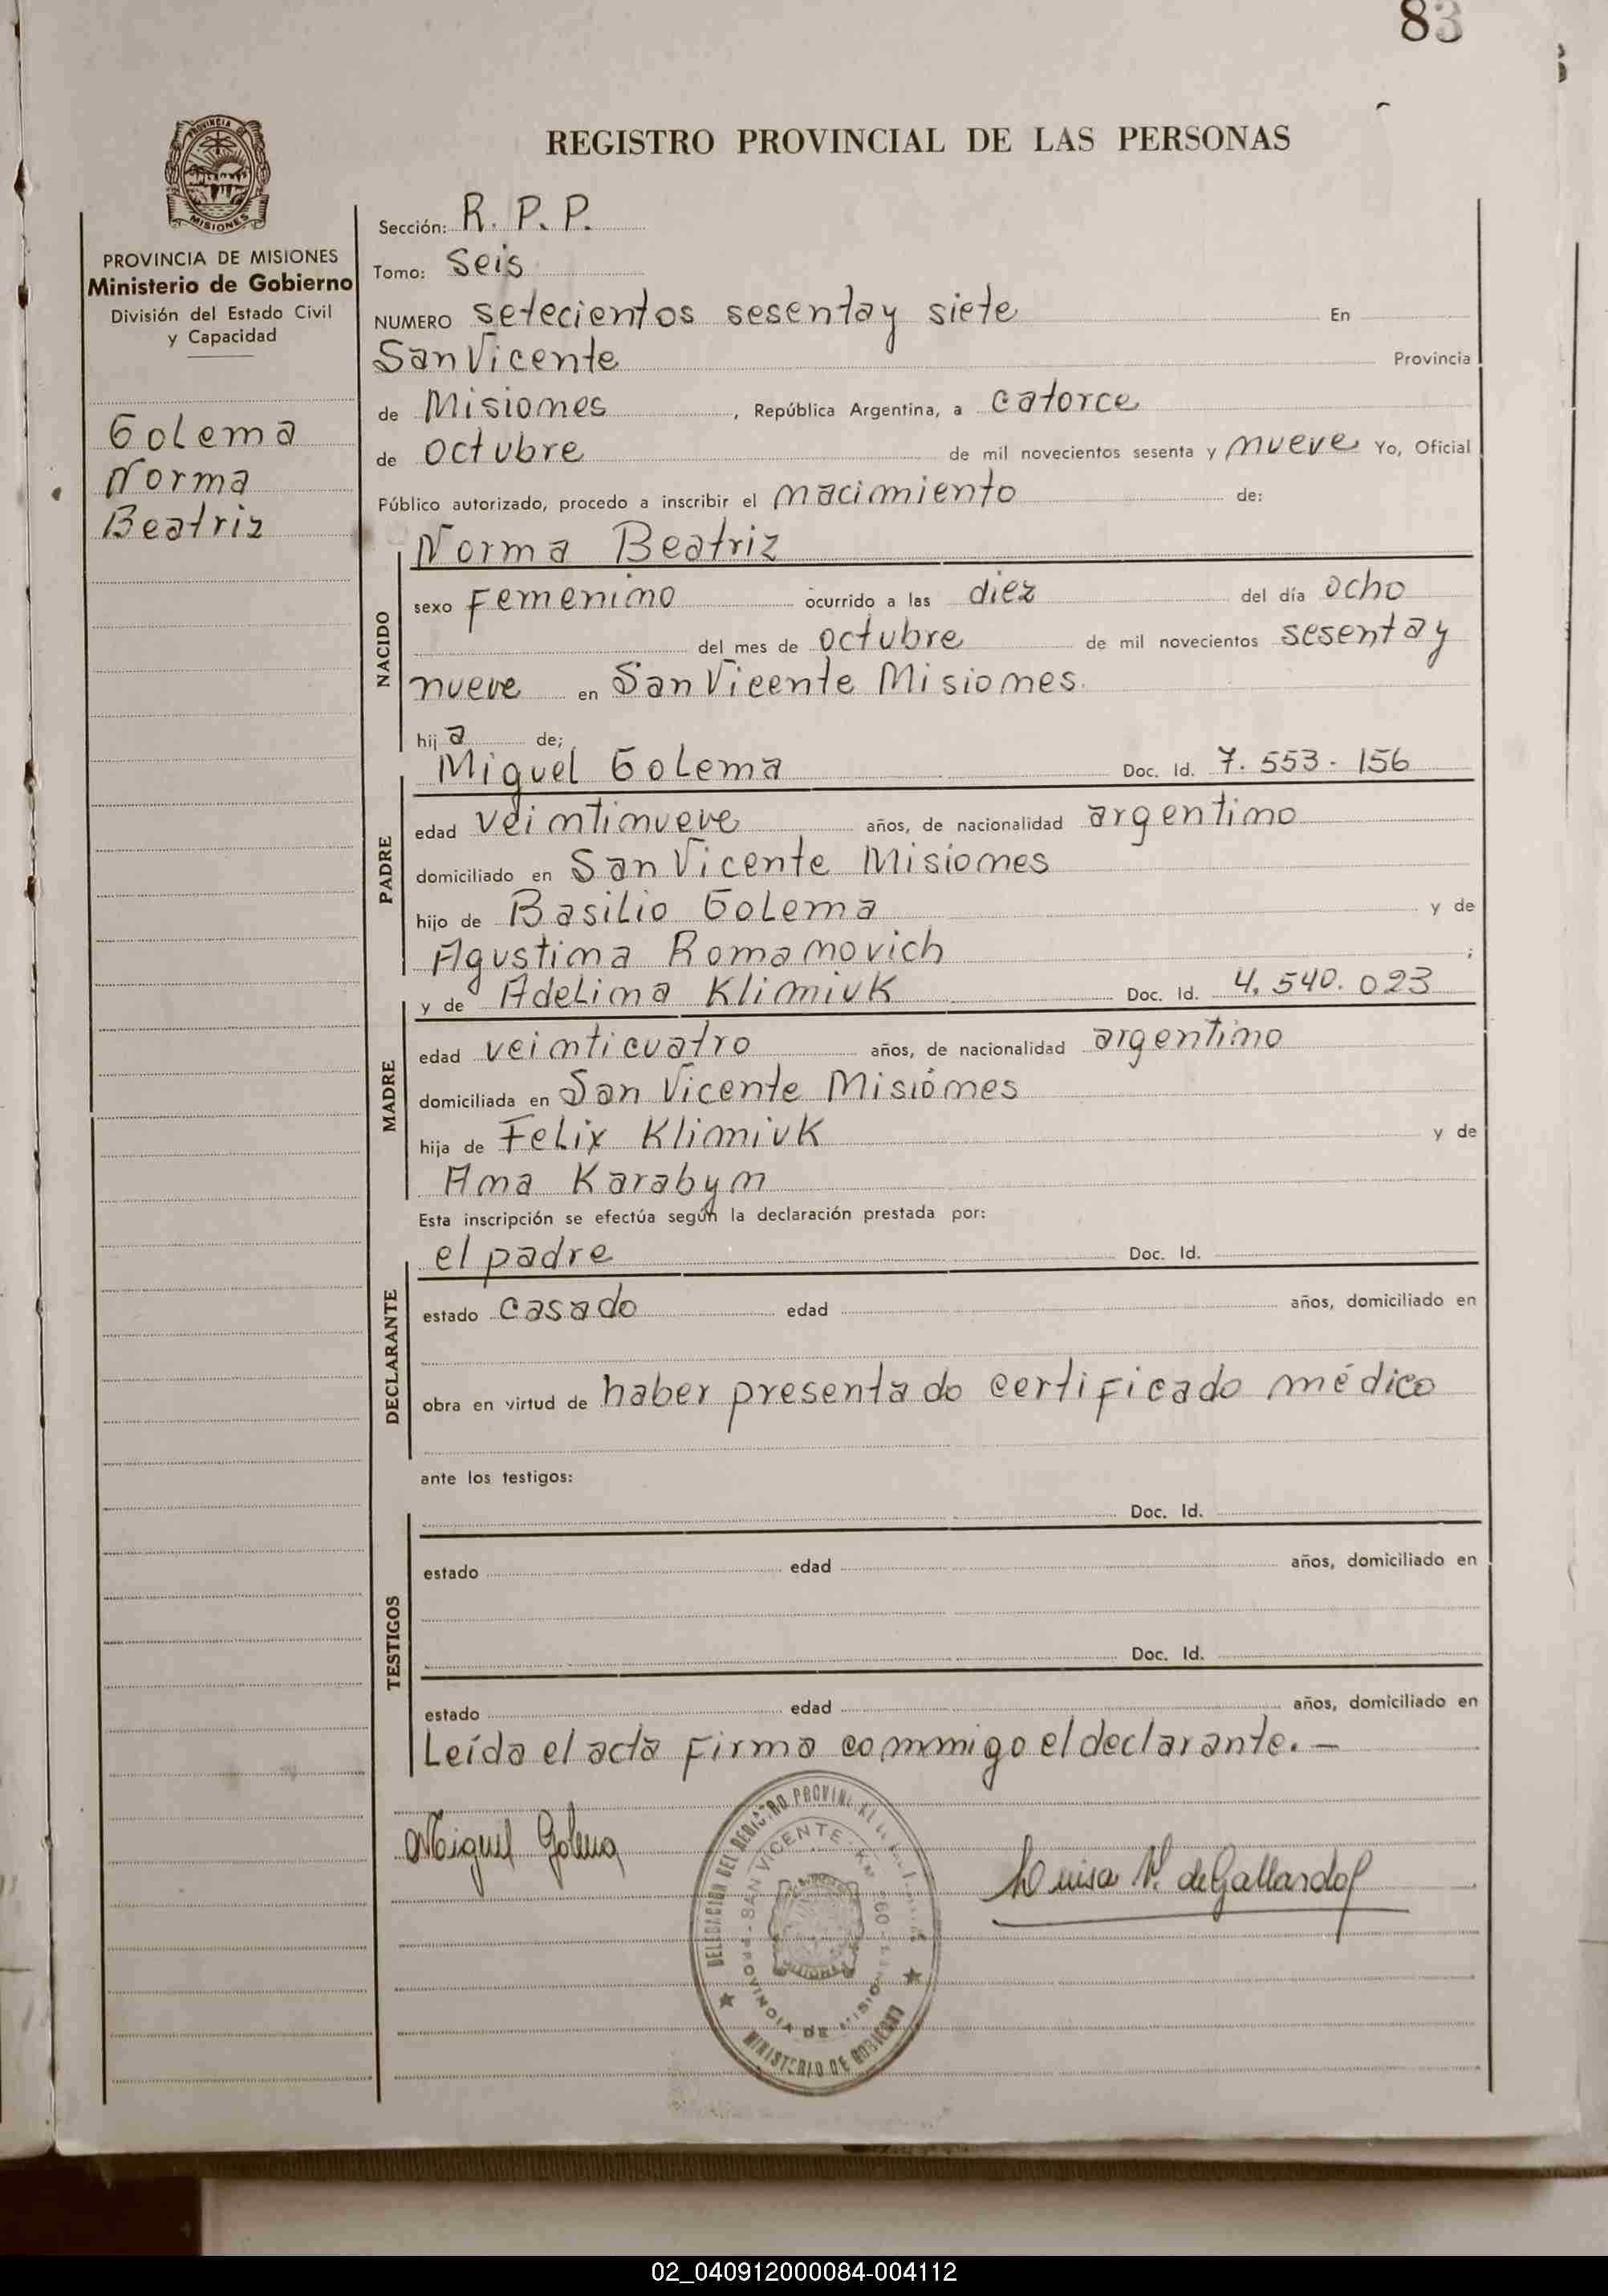 83
REGISTRO PROVINCIAL DE LAS PERSONAS
PROVINCIA DE
MISIONES
PROVINCIA DE MISIONES
Ministerio de Gobierno
División del Estado Civil
y Capacidad
Golema
Norma
Beatriz
Sección: R. P. P.
Tomo: Seis
NUMERO setecientos sesenta y siete En
San Vicente Provincia
de Misiones, República Argentina, a catorce
de octubre de mil novecientos sesenta y nueve Yo, Oficial
Público autorizado, procedo a inscribir el nacimiento de:
NACIDO
Norma Beatriz
sexo Femenino ocurrido a las diez del día ocho
del mes de octubre de mil novecientos sesenta y
nueve en San Vicente Misiones.
hij a de;
PADRE
Miguel Golema Doc. Id. 7.553.156
edad veintinueve años, de nacionalidad argentino
domiciliado en San Vicente Misiones
hijo de Basilio Golema y de
Agustina Romanovich ;
MADRE
y de Adelina Klimiuk Doc. Id. 4.540.023
edad veinticuatro años, de nacionalidad argentino
domiciliada en San Vicente Misiónes
hija de Felix Klimiuk y de
Ana Karabyn
Esta inscripción se efectúa según la declaración prestada por:
DECLARANTE
el padre Doc. Id.
estado casado edad años, domiciliado en
obra en virtud de haber presentado certificado médico
ante los testigos:
TESTIGOS
Doc. Id.
estado edad años, domiciliado en
Doc. Id.
estado edad años, domiciliado en
Leída el acta firma conmigo el declarante. —
Miguel Golema
DELEGACION DEL REGISTRO
SAN VICENTE
PROVINCIA DE MISIONES
MINISTERIO DE GOBIERNO
Luisa V. de Gallardo
02_040912000084-004112